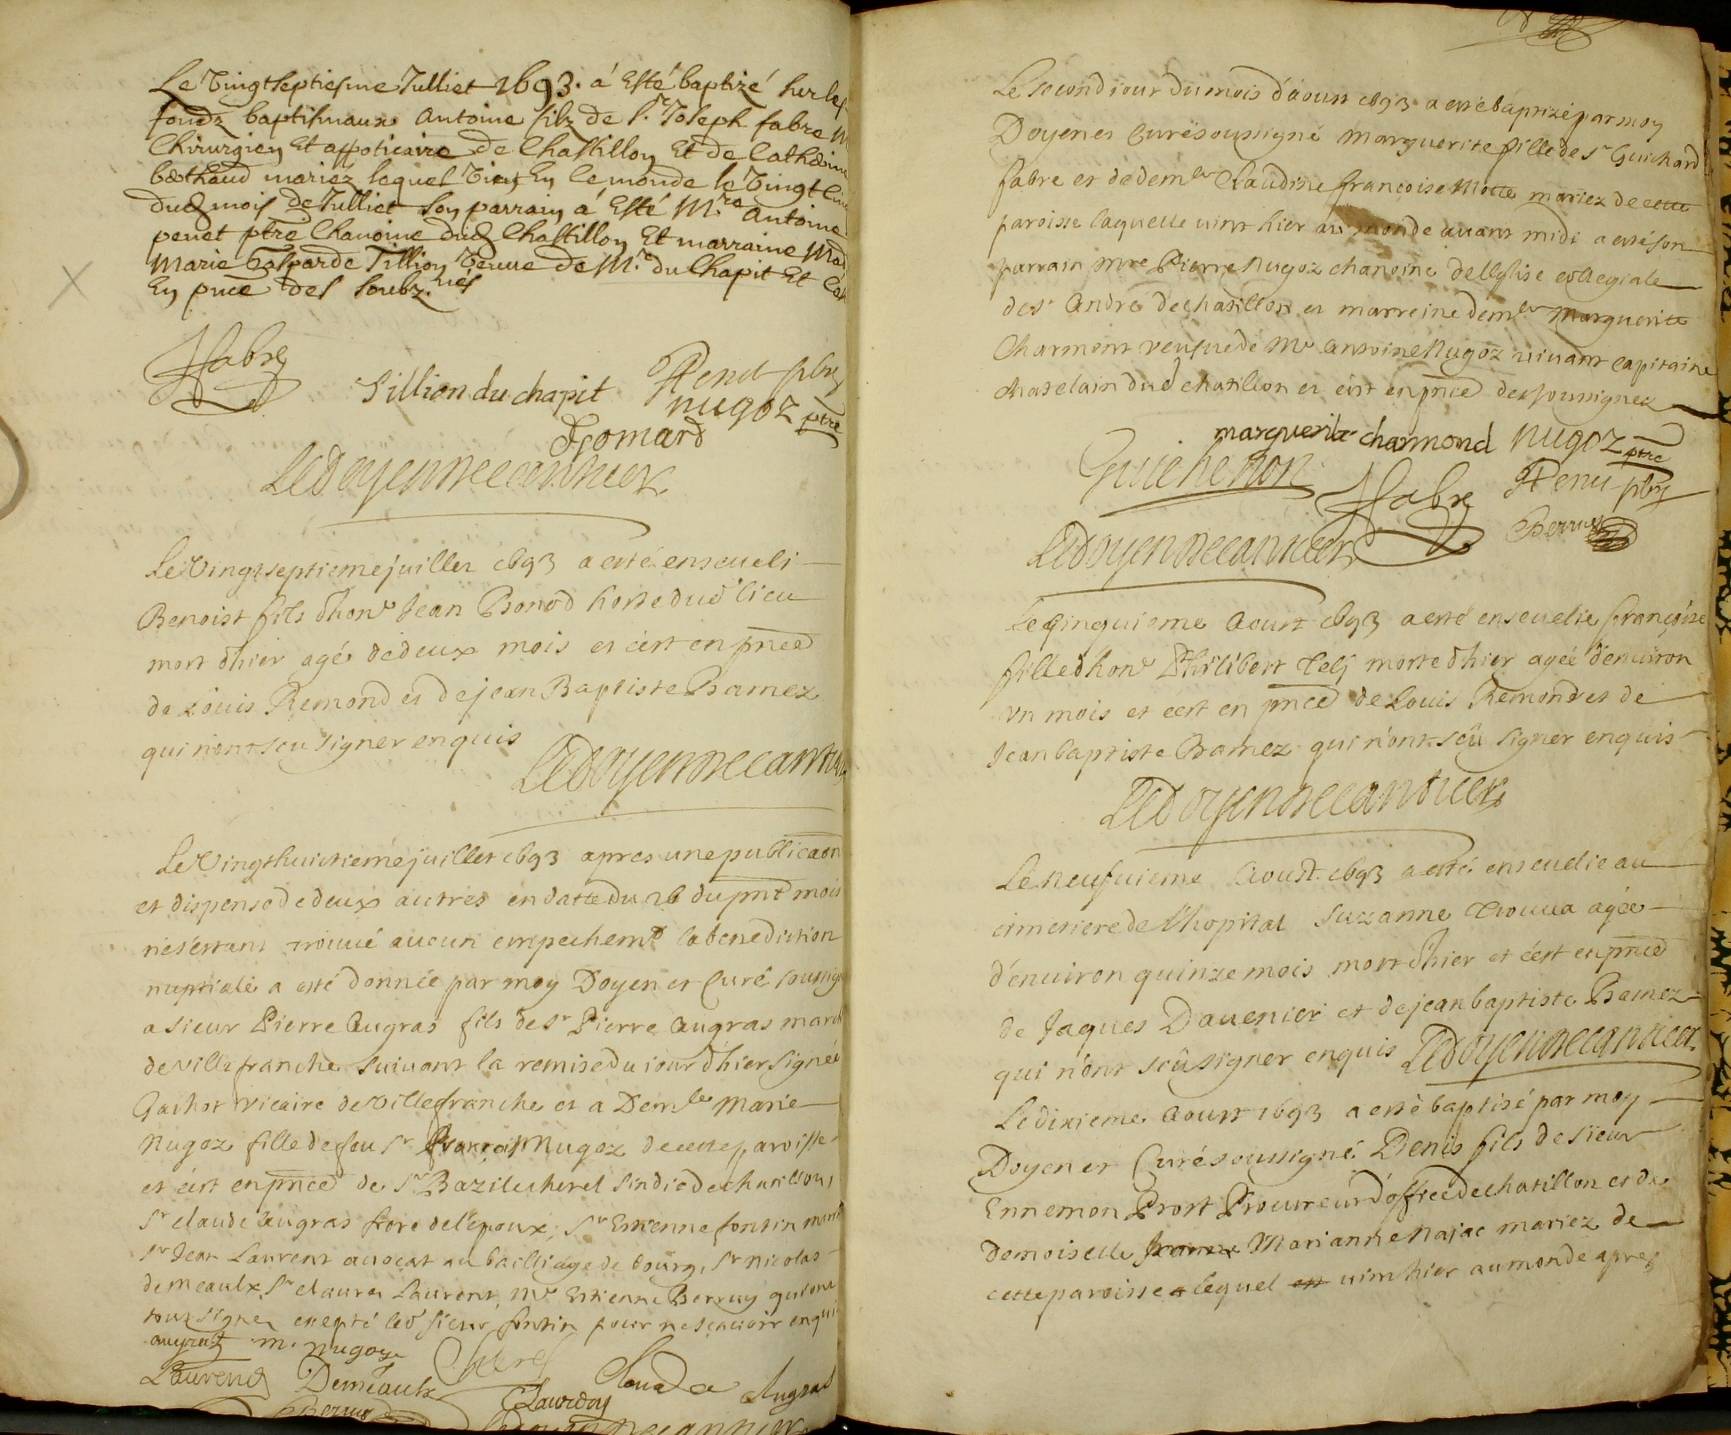 Le Vingtseptiesme Julliet 1693. á Esté baptizé sur les
fondz baptismaux Antoine filz de Sr. Joseph fabre
Chirurgien Et appoticaire de Chastillon Et de Catherine
berthaud mariez lequel Vient En le monde le Vingt
dud mois de Julliet Son parrain á Esté Mre Antoine
penet ptre Chanoine dud Chastillon Et marraine
Marie Gasparde Tillion Veuve de Mr. du Chapit Et
En pnce des soubz.nés
Fabre
Tillion du chapit
Penet pbre
nugoz ptre
Gomard
Le doyen Mecannier
Le Vingtseptieme juillet 1693 a esté enseueli
Benoist fils d'honr Jean Bonod hoste dud lieu
mort d'hier agé de deux mois et c'est en pnce
de Louis Remond et de jean Baptiste Bamez
qui n'ont sceu signer enquis
Le doyen Mecannier
Le Vingthuictieme juillet 1693 apres une publicaon
et dispense de deux autres en datte du 26 du pnt mois
n'estant trouué aucun empechemt la benediction
nuptiale a esté donnée par moy Doyen et Curé
a sieur Pierre Augras fils de sr Pierre Augras
de Villefranche suiuant la remise du iour d'hier signée
Gachot Vicaire de Villefranche et a Demlle Marie
Nugoz fille de feu Sr françois Nugoz de cette paroisse
et c'est en pnce de Sr Bazile cherel sindic de chatillon,
Sr claude Augras frere de l'epoux, Sr Estienne fontin
Sr Jean Laurent auocat au bailliage de bourg, Sr nicolas
demeaulx, Sr Laurent, Mr Estienne Berruy qui ont
tous signer excepté led sieur fontin pour ne scauoir
augras m. nugoz
Laurend Demeaulx
Augras
Berruy
Le doyen Mecannier
Le second iour du mois d'aoust 1693 a esté baptizé par moy
Doyen et Curé soussigné Marguerite fille de sr Guichard
fabre et de demlle Claudine françoise Motte mariez de cette
paroisse laquelle uint hier au monde auant midi a esté son
parrain Mre Pierre Nugoz chanoine de l'Eglise collegiale
de St André de chatillon et marreine demlle Marguerite
Charmont veufue de Mr Antoine Nugoz uiuant capitaine
chatelain dud chatillon et c'est en pnce des soussignez
marguerite charmond nugoz ptre
Guichenon
Fabre Penet pbre
Berruy
Le doyen Mecannier
Le cinquieme Aoust 1693 a esté enseuelie françoise
fille d'honr Philibert morte d'hier agée d'enuiron
vn mois et c'est en pnce de Louis Remond et de
Jean baptiste Bamez qui n'ont sçeu signer enquis
Le doyen Mecannier
Le neufuieme Aoust 1693 a esté enseuelie au
cimetiere de l'hopital Suzanne trouua agée
d'enuiron quinze mois mort d'hier et c'est en pnce
de Jaques Dauenier et de jean baptiste Bamez
qui n'ont sçeu signer enquis Le doyen Mecannier
Le dixieme Aoust 1693 a esté baptisé par moy
Doyen et Curé soussigné Denis fils de sieur
Ennemon Prost Procureur d'office de chatillon et de
demoiselle Marianne Najac mariez de
cette paroisse lequel est uint hier au monde apres